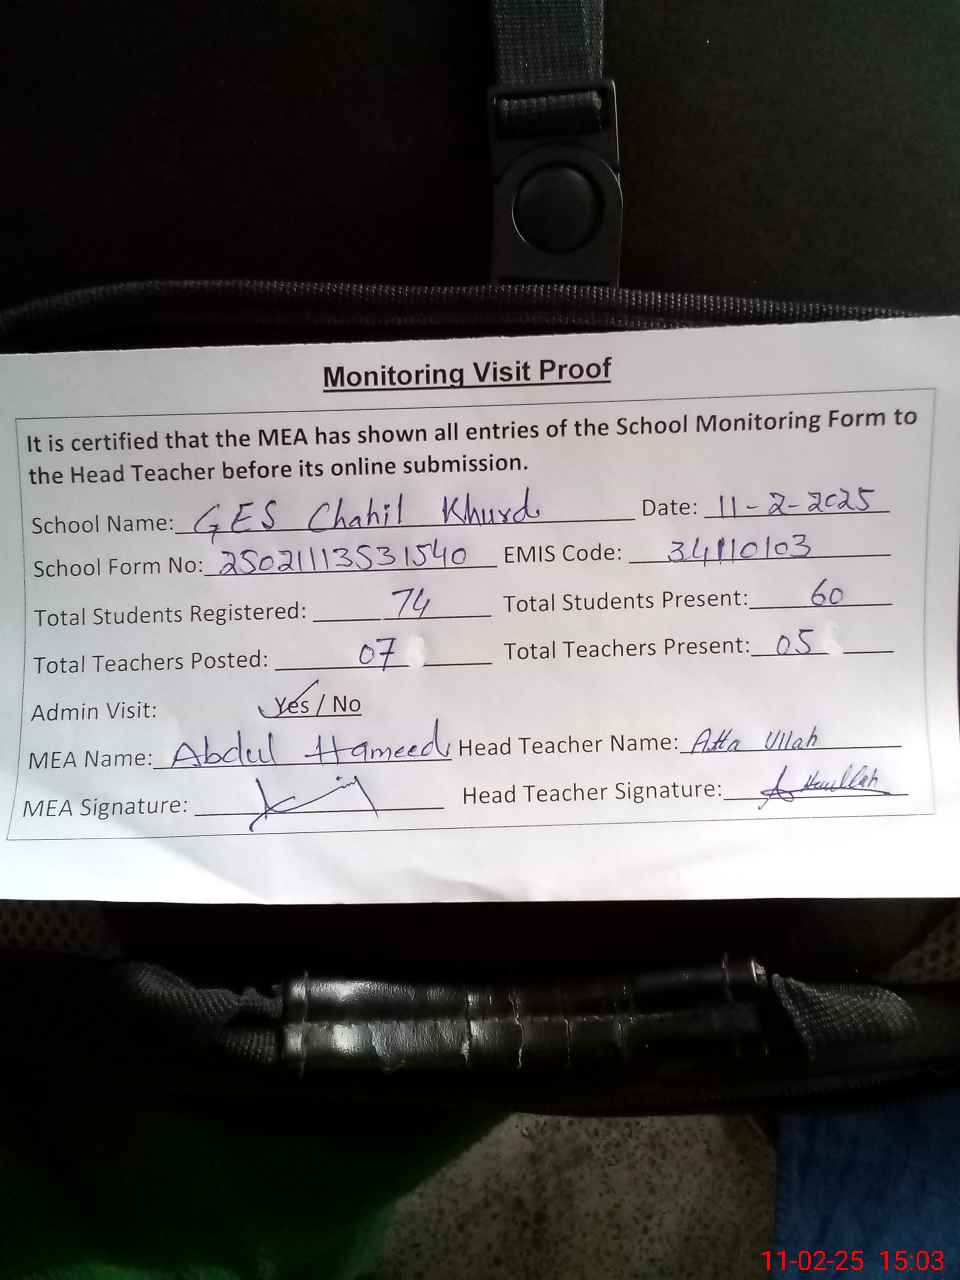 Monitoring Visit Proof
It is certified that the MEA has shown all entries of the School Monitoring Form to
the Head Teacher before its online submission.
School Name: GES Chahil Khurd Date: 11-2-2025
School Form No: 25021113531540 EMIS Code: 34110103
Total Students Registered: 74 Total Students Present: 60
Total Teachers Posted: 07 Total Teachers Present: 05
Admin Visit: Yes / No
MEA Name: Abdul Hameed Head Teacher Name: Atta Ullah
MEA Signature: Head Teacher Signature:
11-02-25 15:03